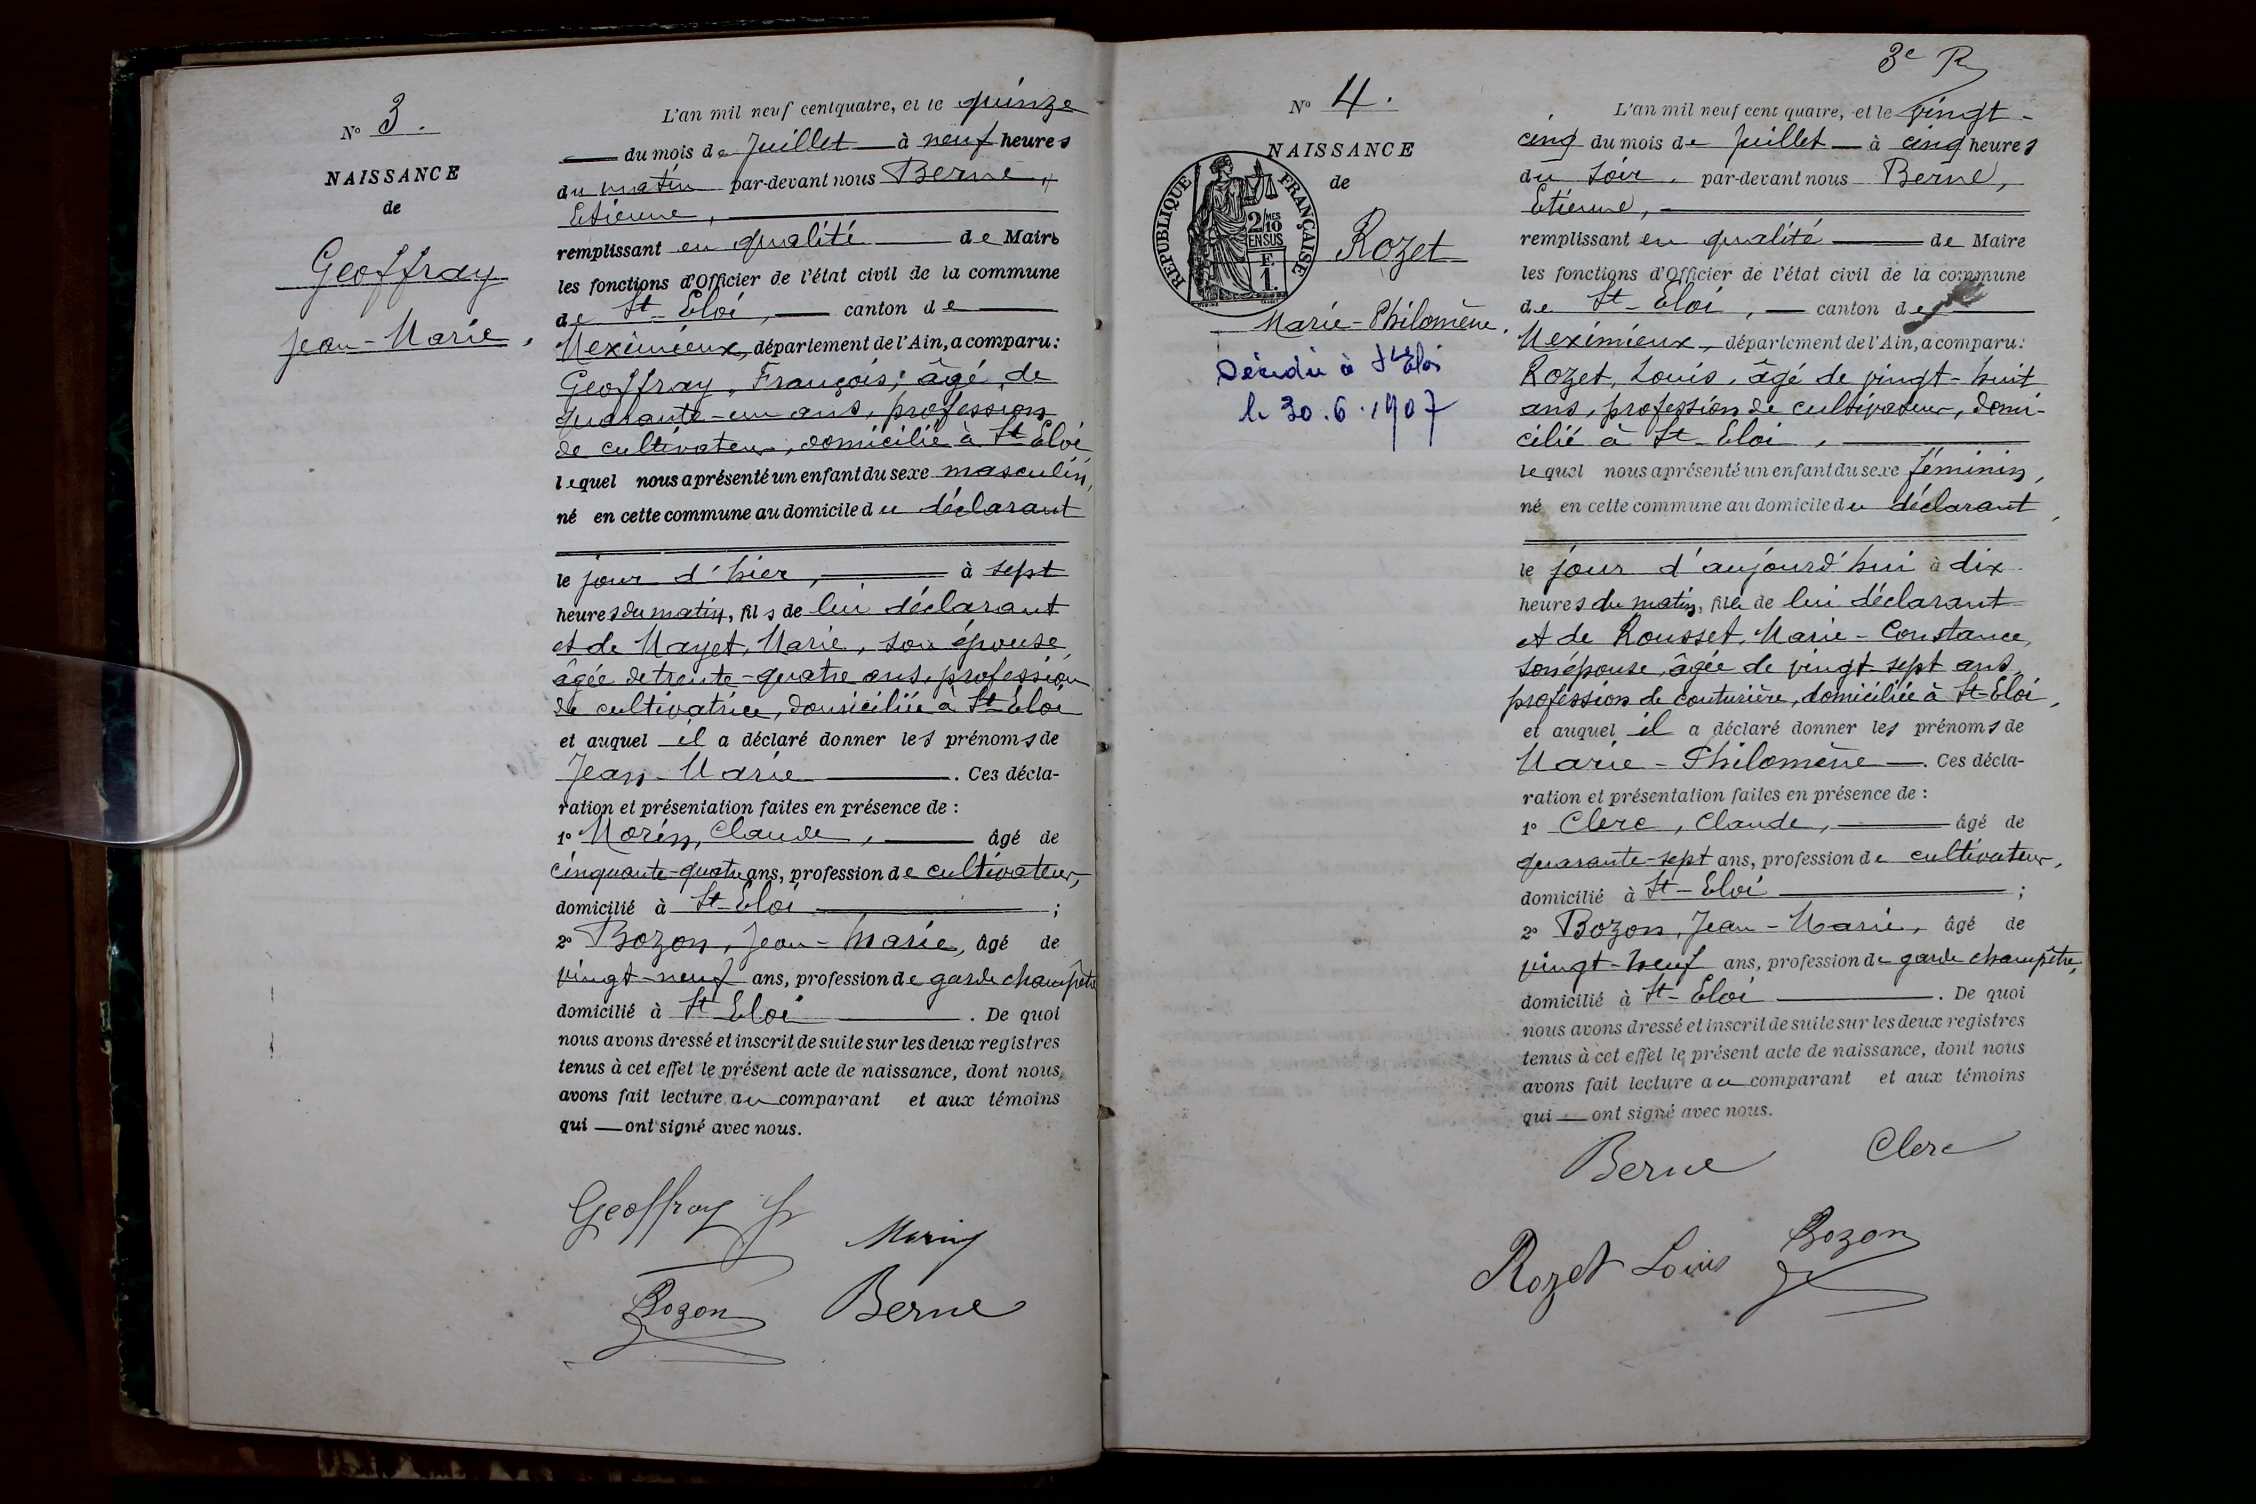 N° 3.
NAISSANCE
de
Geoffray
Jean-Marie.
L'an mil neuf cent quatre, et le quinze
du mois de Juillet à neuf heures
du matin par-devant nous Berne,
Etienne,
remplissant en qualité de Maire
les fonctions d'Officier de l'état civil de la commune
de St-Eloi, canton de
Meximieux, département de l'Ain, a comparu:
Geoffray, François, âgé de
quarante-un ans, profession
de cultivateur, domicilié à St-Eloi
lequel nous a présenté un enfant du sexe masculin,
né en cette commune au domicile du déclarant
le jour d'hier, à sept
heures du matin, fils de lui déclarant
et de Mayet, Marie, son épouse,
âgée de trente-quatre ans, profession
de cultivatrice, domiciliée à St-Eloi
et auquel il a déclaré donner les prénoms de
Jean-Marie. Ces décla-
ration et présentation faites en présence de :
1° Morin, Claude, âgé de
cinquante-quatre ans, profession de cultivateur,
domicilié à St-Eloi ;
2° Bozon, Jean-Marie, âgé de
vingt-neuf ans, profession de garde champêtre
domicilié à St-Eloi. De quoi
nous avons dressé et inscrit de suite sur les deux registres
tenus à cet effet le présent acte de naissance, dont nous
avons fait lecture au comparant et aux témoins
qui ont signé avec nous.
Geoffray fr
Morin
Bozon Berne
3e R
N° 4.
NAISSANCE
de
RÉPUBLIQUE FRANÇAISE
2/10 MES
EN SUS
F.
1.
Rozet
Marie-Philomène.
Décédée à St Eloi
le 30.6.1907
L'an mil neuf cent quatre, et le vingt-
cinq du mois de Juillet à cinq heures
du soir, par-devant nous Berne,
Etienne,
remplissant en qualité de Maire
les fonctions d'Officier de l'état civil de la commune
de St-Eloi, canton de
Meximieux, département de l'Ain, a comparu:
Rozet, Louis, âgé de vingt-huit
ans, profession de cultivateur, domi-
cilié à St-Eloi,
lequel nous a présenté un enfant du sexe féminin,
né en cette commune au domicile du déclarant,
le jour d'aujourd'hui à dix
heures du matin, fille de lui déclarant
et de Rousset, Marie-Constance,
son épouse, âgée de vingt sept ans,
profession de couturière, domiciliée à St-Eloi,
et auquel il a déclaré donner les prénoms de
Marie-Philomène. Ces décla-
ration et présentation faites en présence de :
1° Clerc, Claude, âgé de
quarante-sept ans, profession de cultivateur,
domicilié à St-Eloi ;
2° Bozon, Jean-Marie, âgé de
vingt-neuf ans, profession de garde champêtre,
domicilié à St-Eloi. De quoi
nous avons dressé et inscrit de suite sur les deux registres
tenus à cet effet le présent acte de naissance, dont nous
avons fait lecture au comparant et aux témoins
qui ont signé avec nous.
Berne Clerc
Rozet Louis Bozon